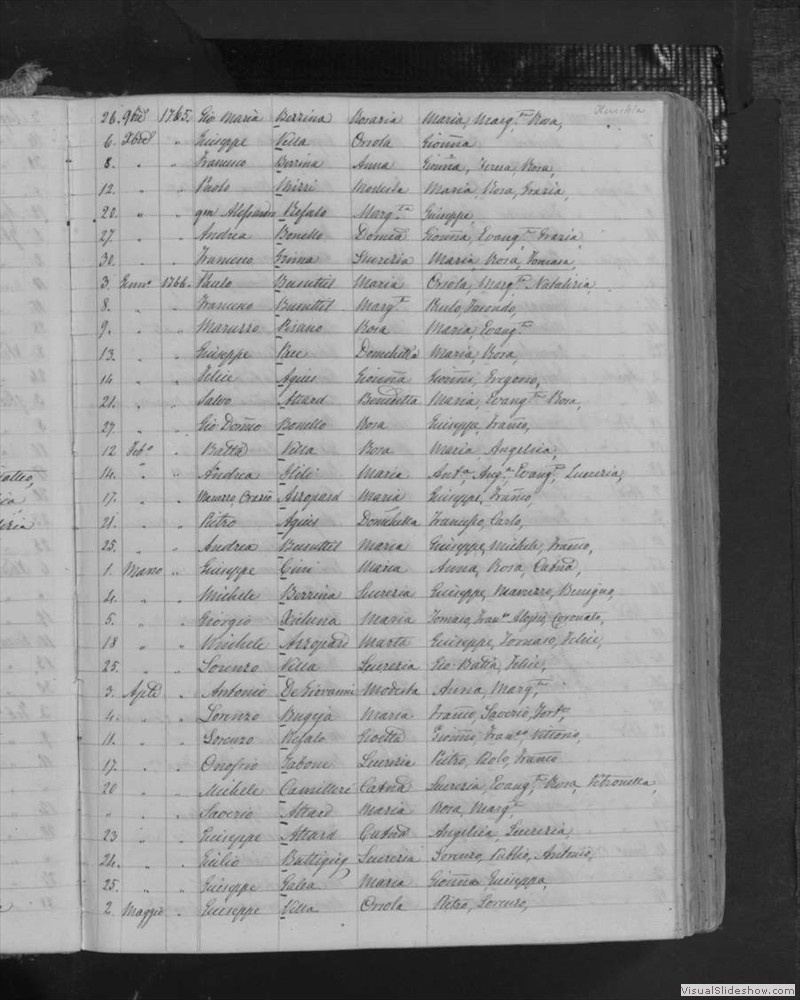 26. 9bre 1765. Gio Maria Berrina Rosaria Maria, Marg.ta Rosa,
6. Xbre " Giuseppe Villa Orsola Gionña
8. " " Francesco Berrina Anna Gionña, Rosa,
12. " " Paolo Mirri Modesta Maria, Rosa, Grazia,
20. " " qm Alessandro Refalo Marg.ta Giuseppe,
27. " " Andrea Bonello Domca Gionña, Evang.ta Grazia,
30. " " Francesco Grima Lucrezia Maria, Rosa, Tomasa,
3. Genn.o 1766. Paulo Busuttil Maria Orsola, Marg.ta Natalizia,
8. " " Francesco Busuttil Marg.ta
9. " " Maruzzo Pisano Rosa Maria, Evang.ta
13. " " Giuseppe Pace Domchella Maria, Rosa,
14. " " Felice Agius Gionña Gionñi, Gregorio,
21. " " Salvo Attard Benedetta Maria, Evang.ta Rosa,
27. " " Gio Domco Bonello Rosa Giuseppe, Franco,
12 Feb.o " Batta Villa Rosa Maria, Angelica,
14. " " Andrea Maria Ant.a Ang.a Evang.ta Lucrezia,
17. " " Orazio Arropard Maria Giuseppe, Franco,
21. " " Pietro Agius Domchella Carlo,
25. " " Andrea Busuttil Maria Giuseppe, Michele, Franco,
1. Marzo " Giuseppe Cini Maria Anna, Rosa, Catña,
4. " " Michele Berrina Lucrezia Giuseppe, Mavrizzo, Benigna,
5. " " Giorgio Xiluna Maria Tomaso, Fran.co Aloysio, Coronato,
18 " " Michele Arropard Marta Giuseppe, Tomaso, Felice,
25. " " Lorenzo Villa Lucrezia Gio Batta, Felice,
3. Aple " Antonio DeGiovanni Modesta Anna, Marg.ta
4. " " Lorenzo Bugeja Maria Franco, Saverio,
11. " " Lorenzo Refalo Gionñi, Fran.co Vittorio,
17. " " Onofrio Gabone Lucrezia Pietro, Polo, Franco
20 " " Michele Camilleri Catña Lucrezia, Evang.ta Rosa, Petronella,
" " " Saverio Attard Maria Rosa, Marg.ta
23 " " Giuseppe Attard Catña Angelica, Lucrezia,
24. " " Giulio Buttigieg Lucrezia Lorenzo, Publio, Antonio,
25. " " Giuseppe Galea Maria Gionña, Giuseppa,
2. Maggio " Giuseppe Villa Orsola Pietro, Lorenzo,
VisualSlideshow.com